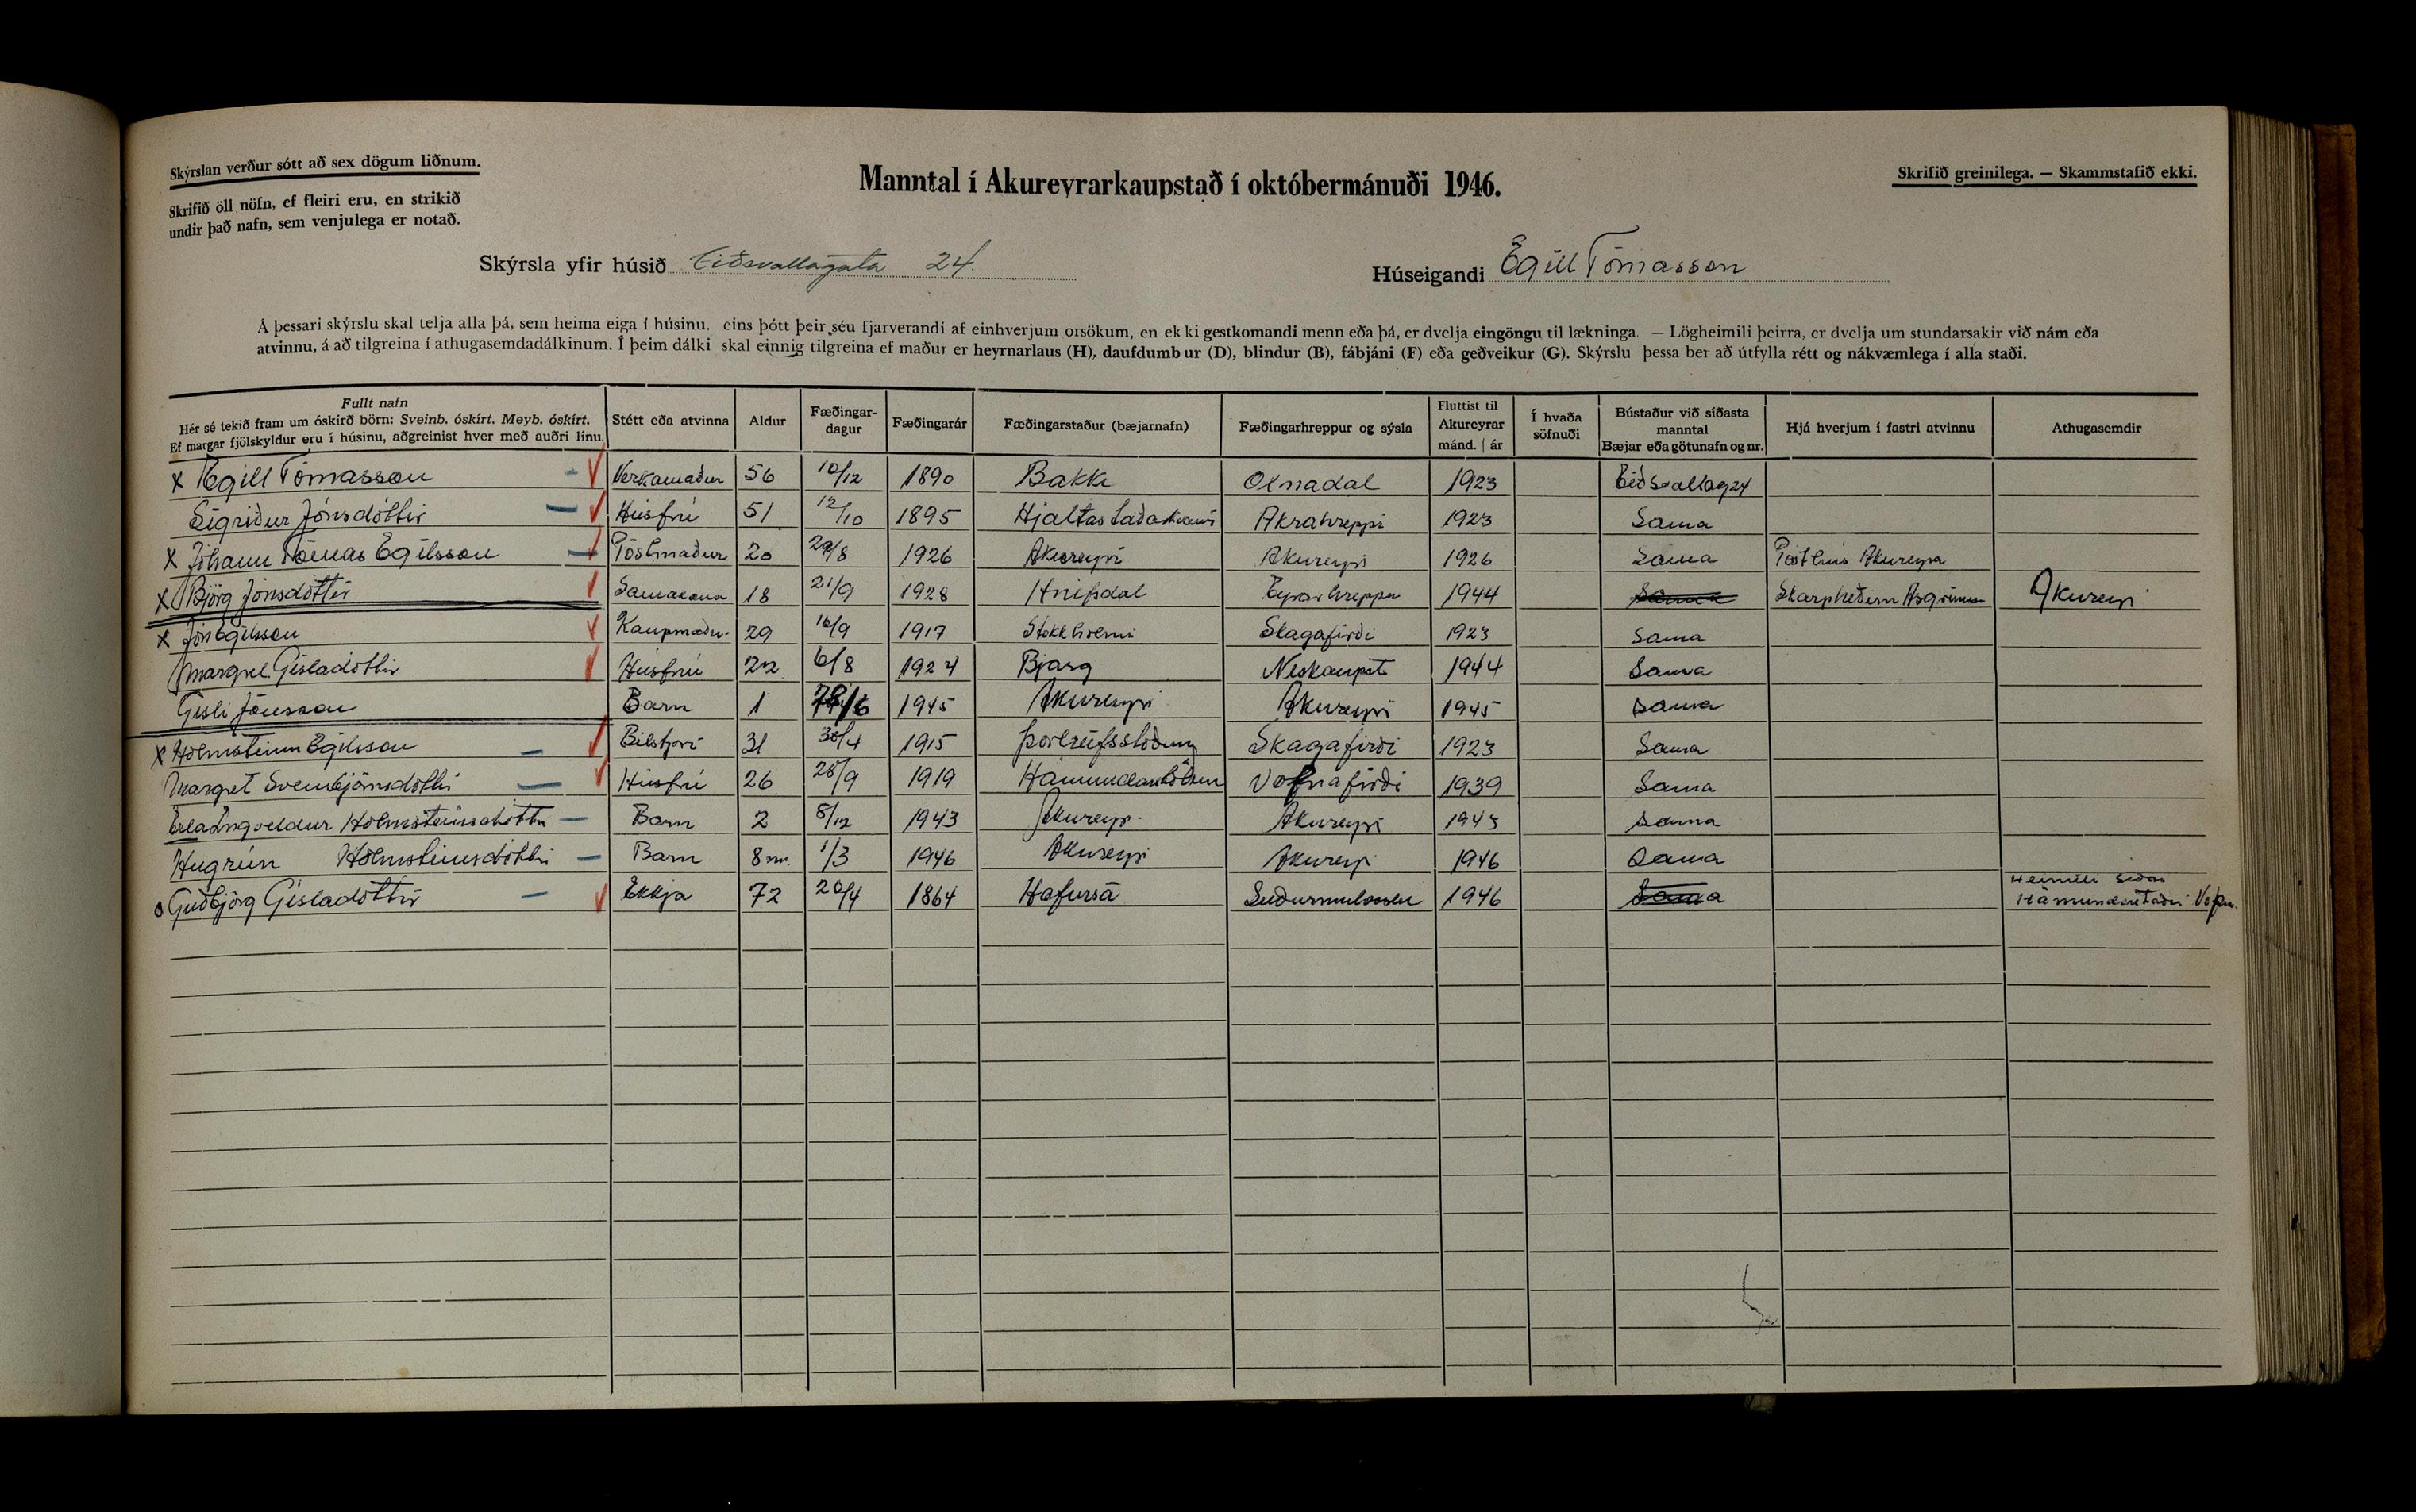 Skýrslan verður sótt að sex dögum liðnum.
Skrifið öll nöfn, ef fleiri eru, en strikið
undir það nafn, sem venjulega er notað.
Manntal í Akureyrarkaupstað í októbermánuði 1946.
Skrifið greinilega. — Skammstafið ekki.
Skýrsla yfir húsið Eiðsvallagata 24.
Húseigandi Egill Tómasson
Á þessari skýrslu skal telja alla þá, sem heima eiga í húsinu, eins þótt þeir séu fjarverandi af einhverjum orsökum, en ekki gestkomandi menn eða þá, er dvelja eingöngu til lækninga. — Lögheimili þeirra, er dvelja um stundarsakir við nám eða
atvinnu, á að tilgreina í athugasemdadálkinum. Í þeim dálki skal einnig tilgreina ef maður er heyrnarlaus (H), daufdumbur (D), blindur (B), fábjáni (F) eða geðveikur (G). Skýrslu þessa ber að útfylla rétt og nákvæmlega í alla staði.
Fullt nafn
Hér sé tekið fram um óskírð börn: Sveinb. óskírt. Meyb. óskírt.
Ef margar fjölskyldur eru í húsinu, aðgreinist hver með auðri línu.
Stétt eða atvinna
Aldur
Fæðingar-
dagur
Fæðingarár
Fæðingarstaður (bæjarnafn)
Fæðingarhreppur og sýsla
Fluttist til
Akureyrar
mánd. | ár
Í hvaða
söfnuði
Bústaður við síðasta
manntal
Bæjar eða götunafn og nr.
Hjá hverjum í fastri atvinnu
Athugasemdir
x Egill Tómasson Verkamaður 56 10/12 1890 Bakka Olnadal 1923 Eiðsvallag 24
Sigriður Jónsdóttir Húsfrú 51 12/10 1895 Akrahreppi 1923 Sama
x Jóhann Tómas Egilsson Póstmaður 20 29/8 1926 Akureyri Akureyri 1926 Sama Pósthús Akureyra
x Björg Jónsdóttir Saumakona 18 21/9 1928 Hnifsdal Eyrarhreppu 1944 Skarpheðinn Asgrimss Akureyri
x Jón Egilsson Kaupmaður 29 16/9 1917 Stokkholmi Skagafirði 1923 Sama
Margret Gisladóttir Húsfrú 22 6/8 1924 Bjarg Neskaupst 1944 Sama
Gisli Jónsson Barn 1 1945 Akureyri Akureyri 1945 Sama
x Hólmsteinn Egilsson Bilstjóri 31 30/4 1915 Þorleifsstöðum Skagafirði 1923 Sama
Margret Sveinbjörnsdóttir Húsfrú 26 28/9 1919 Vopnafirði 1939 Sama
Erla Ingveldur Hólmsteinsdóttir Barn 2 8/12 1943 Akureyri Akureyri 1943 Sama
Hugrún Hólmsteinsdóttir Barn 8 m. 1/3 1946 Akureyri Akureyri 1946 Sama
o Guðbjörg Gisladóttir Ekkja 72 20/4 1864 Hafursá 1946 Sama Heimili
Vopn.